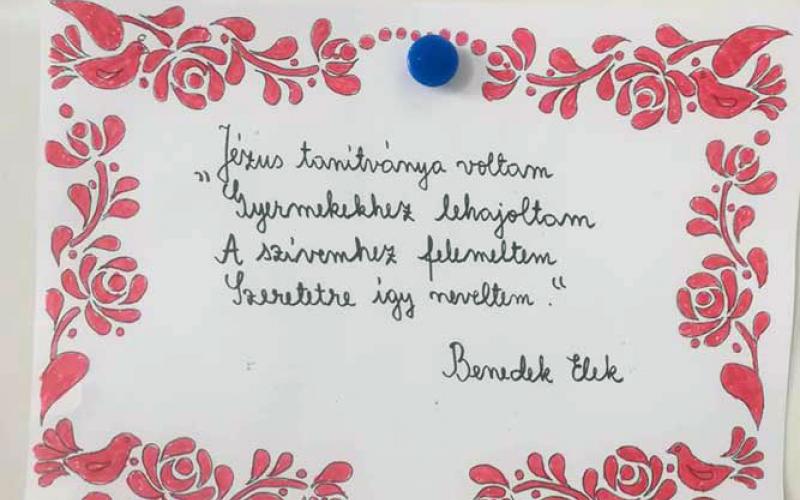 Jézus tanítványa voltam
„Gyermekekhez lehajoltam
A szívemhez felemeltem
Szeretetre így neveltem.“
Benedek Elek